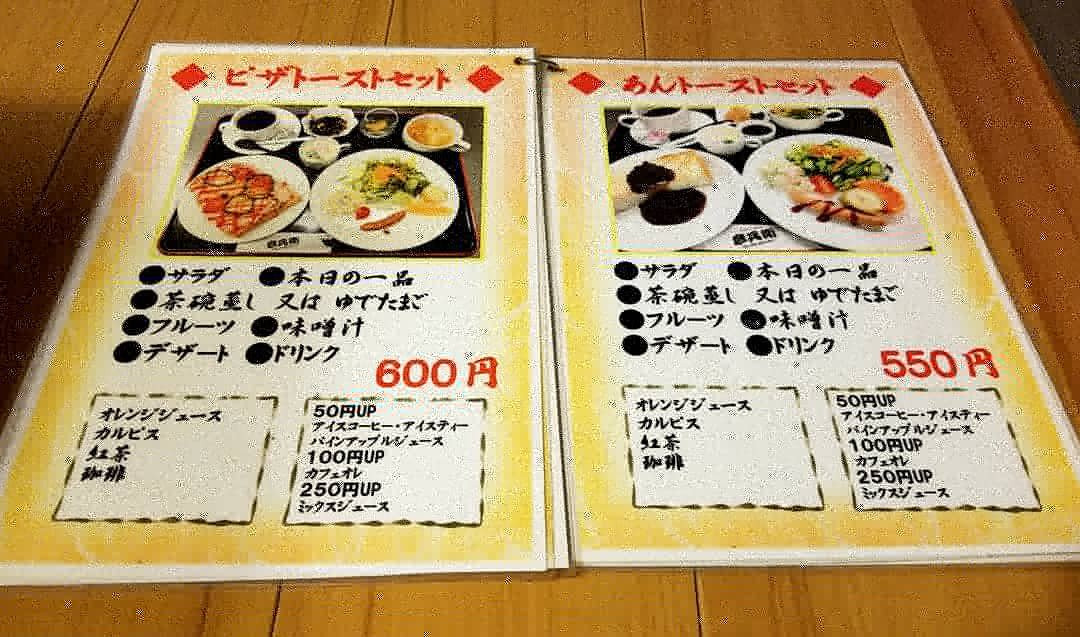 ピザトーストセット
●サラダ ●本日の一品
●茶碗蒸し 又は ゆでたまご
●フルーツ ●味噌汁
●デザート ●ドリンク
600円
オレンジジュース
カルピス
紅茶
珈琲
50円UP
アイスコーヒー・アイスティー
パインアップルジュース
100円UP
カフェオレ
250円UP
ミックスジュース
あんトーストセット
●サラダ ●本日の一品
●茶碗蒸し 又は ゆでたまご
●フルーツ ●味噌汁
●デザート ●ドリンク
550円
オレンジジュース
カルピス
紅茶
珈琲
50円UP
アイスコーヒー・アイスティー
パインアップルジュース
100円UP
カフェオレ
250円UP
ミックスジュース